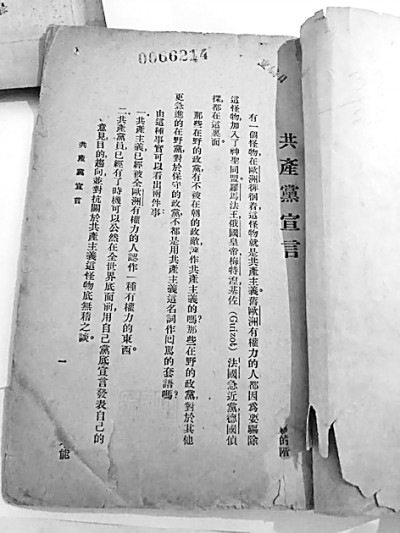 0066214
共產黨宣言
有一個怪物在歐洲徘徊着這怪物就是共產主義舊歐洲有權力的人都因爲要驅除
這怪物加入了神聖同盟羅馬法王俄國皇帝梅特湼基佐(Guizot)法國急近黨德國偵
探都在這裏面。
那些在野的政黨有不被在朝的政敵誣作共產主義的嗎?那些在野的政黨對於其他
更急進的在野黨對於保守的政黨不都是用共產主義這名詞作回罵的套語嗎?
由這種事實可以看出兩件事:
一、共產主義已經被全歐洲有權力的人認作一種有權力的東西。
二、共產黨員已經有了時機可以公然在全世界底面前用自己黨底宣言發表自己的
意見目的趨向並對抗關於共產主義這怪物底無稽之談。
共產黨宣言
一
能